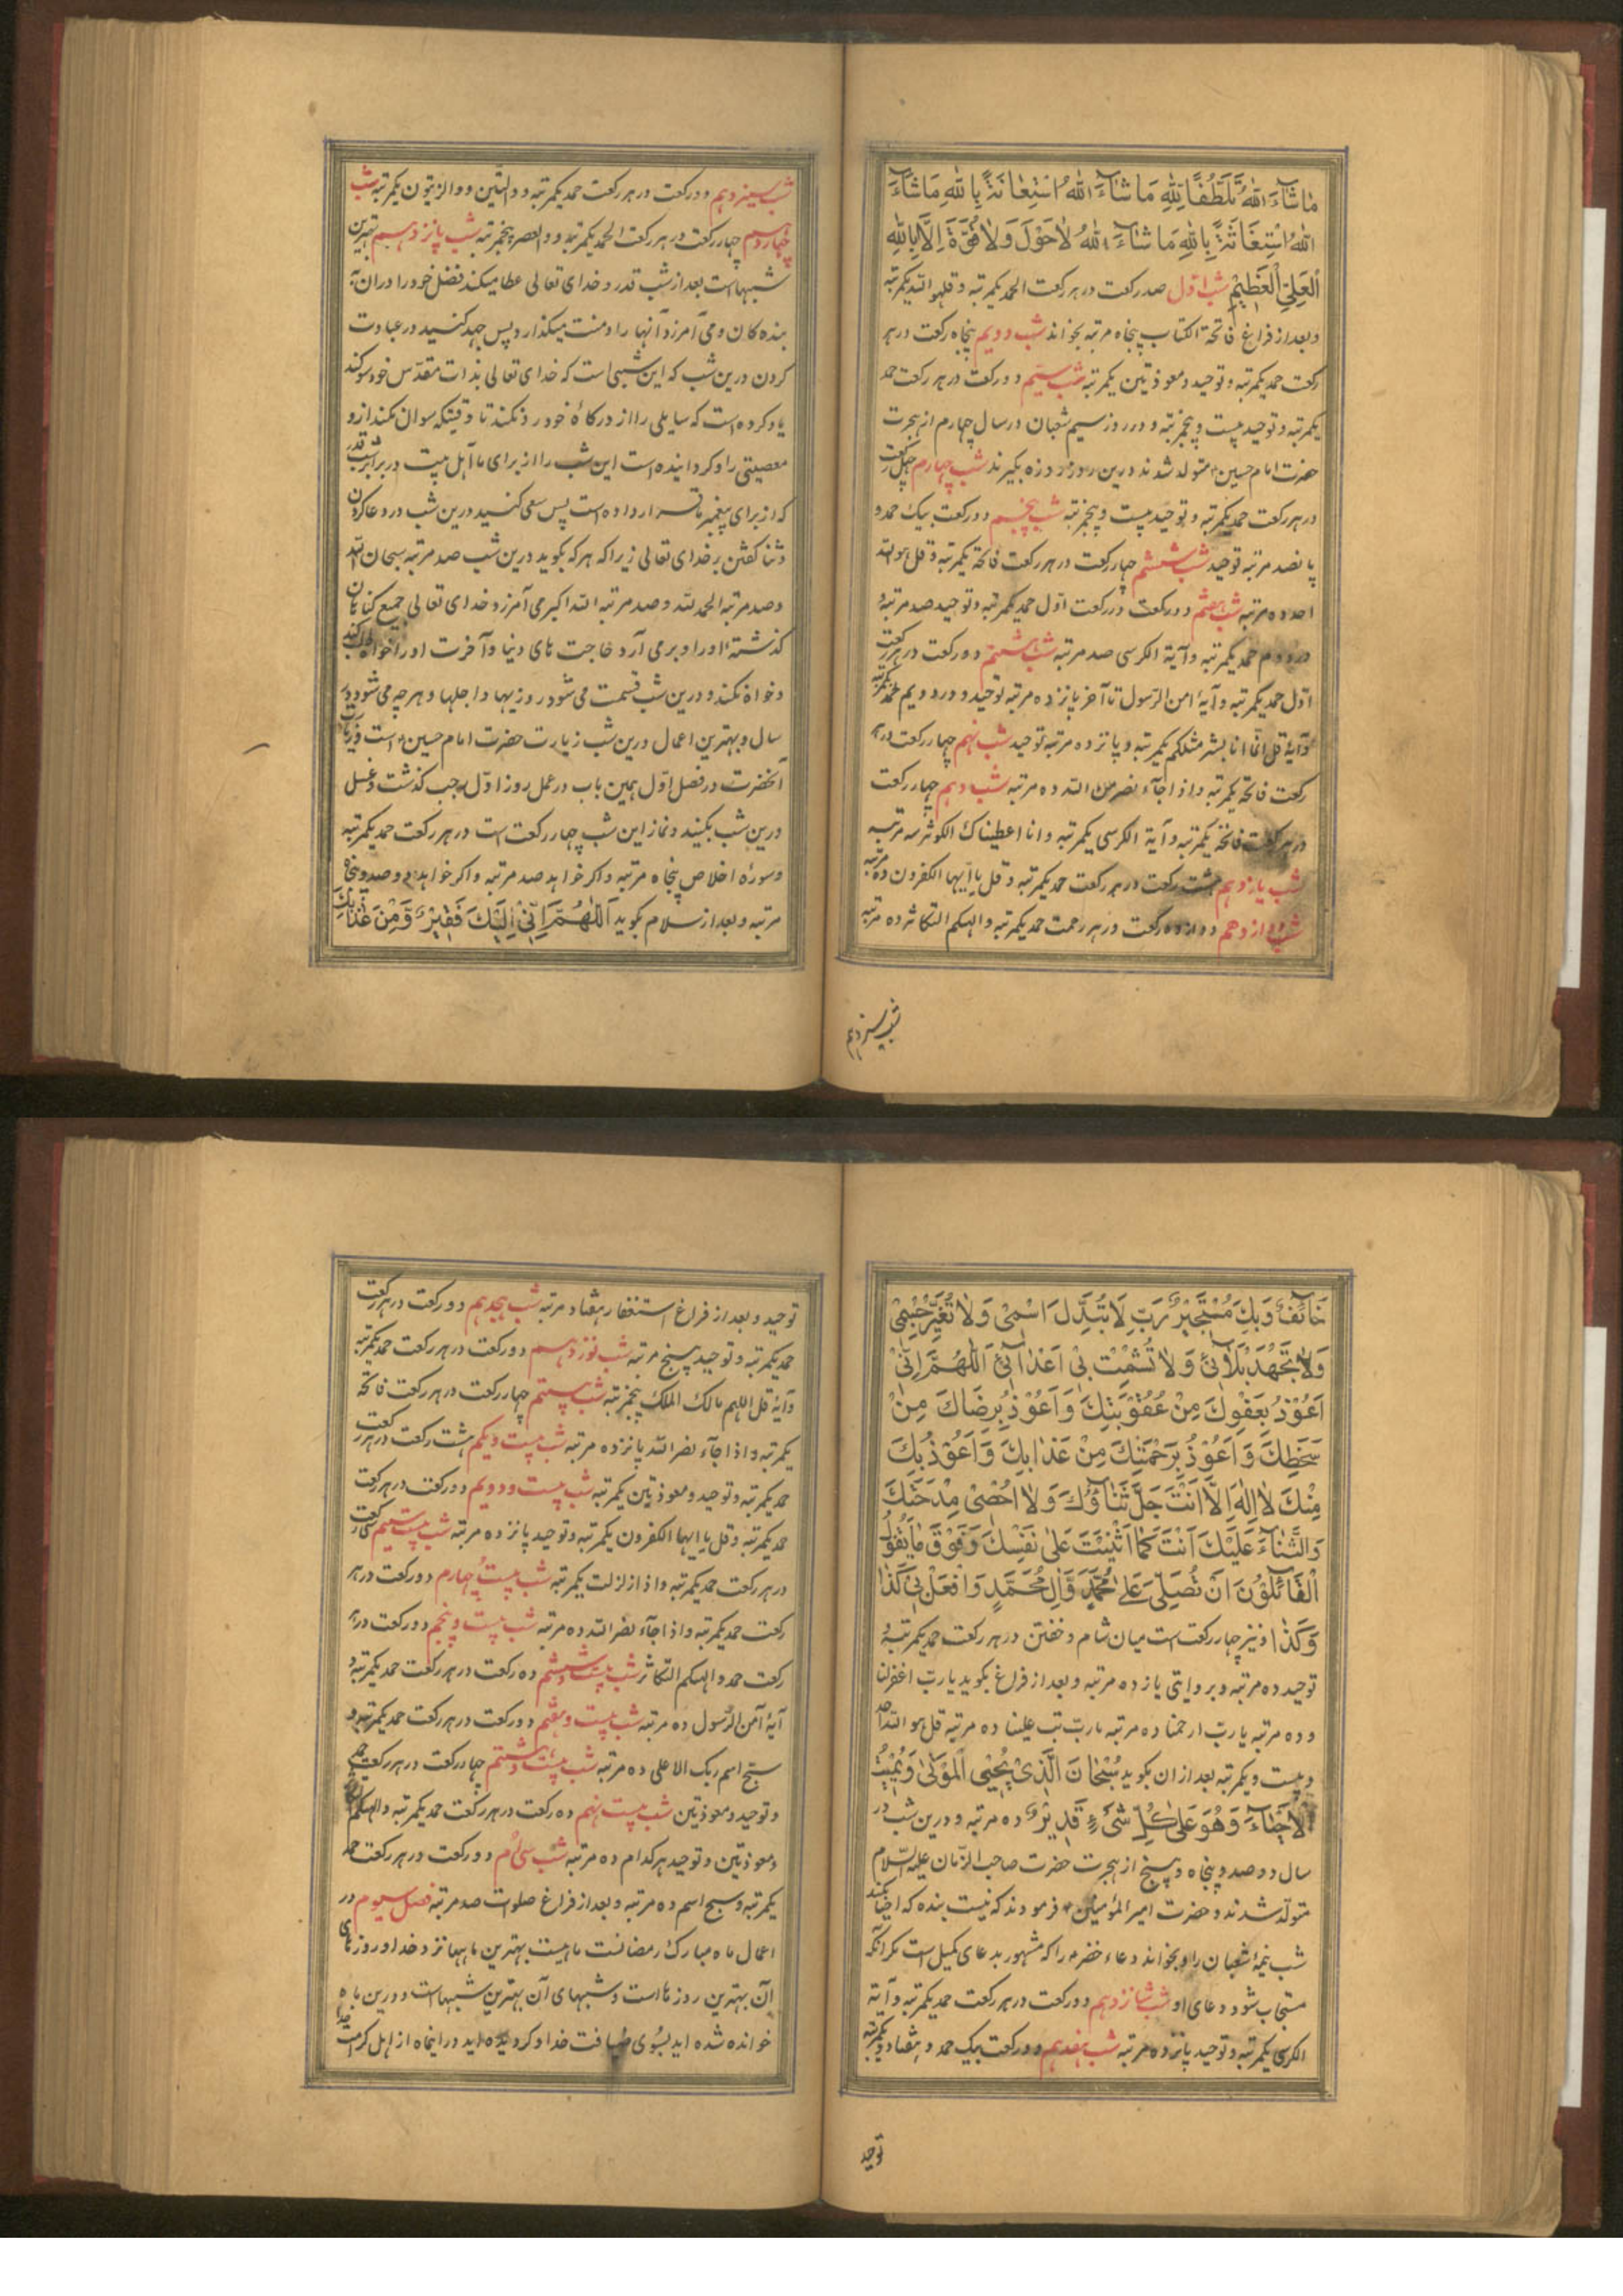 ماشآءَ اللهُ تَلَطُّفًا لِلّٰهِ مَا شآءَ اللهُ اسْتِعانَةً بِاللهِ مَاشآءَ
اللهُ اسْتِغَاثَةً بِاللهِ مَا شآءَ اللهُ لاٰحَوْلَ وَلاٰ قُوَّةَ اِلَّا بِاللهِ
اَلعَلِيِّ الْعَظِيْمِ شب اوّل صد رکعت در هر رکعت الحمد یکمرتبه و قلهوالله یکمرتبه
و بعد از فراغ فاتحة الکتاب پنجاه مرتبه بخواند شب دویم پنجاه رکعت در هر
رکعت حمد یکمرتبه و توحید و معوذتین یکمرتبه شب سیّم دو رکعت در هر رکعت حمد
یکمرتبه و توحید بیست و پنجمرتبه و در روز سیم شعبان در سال چهارم از هجرت
حضرت امام حسین ۴ متولد شدند درین روز روزه بگیرند شب چهارم چهل رکعت
در هر رکعت حمد یکمرتبه و توحید بیست و پنجمرتبه شب پنجم دو رکعت بیک حمد و
پانصد مرتبه توحید شب ششم چهار رکعت در هر رکعت فاتحه یکمرتبه و قل هو الله
احد ده مرتبه شب هفتم دو رکعت در رکعت اوّل حمد یکمرتبه و توحید صد مرتبه و
در دوم حمد یکمرتبه و آیة الکرسی صد مرتبه شب هشتم ده رکعت در هر رکعت
اوّل حمد یکمرتبه و آیهٔ امن الرّسول تا آخر پانزده مرتبه توحید و در دویم حمد یکمرتبه
و آیهٔ قل انّما انا بشر مثلکم یکمرتبه و پانزده مرتبه توحید شب نهم چهار رکعت در هر
رکعت فاتحه یکمرتبه و اذا جآء نصر من الله ده مرتبه شب دهم چهار رکعت
در هر رکعت فاتحه یکمرتبه و آیة الکرسی یکمرتبه و انا اعطیناک الکوثر سه مرتبه
شب یازدهم هشت رکعت در هر رکعت حمد یکمرتبه و قل یا ایّها الکفرون ده مرتبه
شب دوازدهم دوازده رکعت در هر رحمت حمد یکمرتبه و الهیکم التکاثر ده مرتبه
شب سیزدهم
شب سیزدهم دو رکعت در هر رکعت حمد یکمرتبه و والتّین و والزیتون یکمرتبه شب
چهاردهم چهار رکعت در هر رکعت الحمد یکمرتبه و والعصر پنجمرتبه شب پانزدهم بهترین
شبهاست بعد از شب قدر و خدای تعالی عطا میکند فضل خود را در آن به
بنده کان و می آمرزد آنها را و منت میگذارد پس جهد کنید در عبادت
کردن درین شب که این شبی است که خدای تعالی بذات مقدّس خود سوکند
یاد کرده است که سایلی را از درکاهٔ خود رد نکند تا وقتیکه سوال نکند از و
معصیتی را و کردانیده است این شب را از برای ما آهل بیت در برابر شب قدر
که از برای پیغمبر ما قرار داده است پس سعی کنید درین شب در دعا کردن
و ثنا کفتن بر خدای تعالی زیرا که هر که بکوید درین شب صد مرتبه سبحان الله
و صد مرتبه الحمد لله و صد مرتبه الله اکبر می آمرزد خدای تعالی جمیع کناهان
کذشتهٔ او را و بر می آرد حاجت های دنیا و آخرت او را خواه طلب کند
و خواه نکند و درین شب قسمت می شود روزیها و اجلها و هر چه می شود در
سال و بهترین اعمال درین شب زیارت حضرت امام حسین ۴ است و زیارت
آنحضرت در فصل اوّل همین باب در عمل روز اوّل رجب کذشت و غسل
درین شب بکنید و نماز این شب چهار رکعت است در هر رکعت حمد یکمرتبه
و سورهٔ اخلاص پنجاه مرتبه و اکر خواهد صد مرتبه و اکر خواهد دو صد و پنجاه
مرتبه و بعد از سلام بکوید اَللّٰهُمَّ اِنِّیْ اِلَیْكَ فَقِیْرٌ وَّ مِنْ عَذَابِكَ
خَآئِفٌ وَبِكَ مُسْتَجِیْرٌ رَبِّ لَا تُبَدِّلْ اسْمِیْ وَلاٰ تُغَیِّرْ جِسْمِیْ
وَلاٰ تَجْهَدْ بَلَائِیْ وَلاٰ تُشْمِتْ بِیْ اَعْدَآئِیْ اَللّٰهُمَّ اِنِّیْ
اَعُوْذُ بِعَفْوِكَ مِنْ عُقُوْبَتِكَ وَ اَعُوْذُ بِرِضَاكَ مِنْ
سَخَطِكَ وَ اَعُوْذُ بِرَحْمَتِكَ مِنْ عَذَابِكَ وَ اَعُوْذُ بِكَ
مِنْكَ لاٰ اِلٰهَ اِلَّا اَنْتَ جَلَّ ثَنَاؤُكَ وَلاٰ اُحْصٰی مِدْحَتَكَ
وَالثَّنَاءَ عَلَیْكَ اَنْتَ كَمَا اَثْنَیْتَ عَلٰی نَفْسِكَ وَ فَوْقَ مَا یَقُوْلُ
الْقَائِلُوْنَ اَنْ تُصَلِّیَ عَلٰی مُحَمَّدٍ وَّ اٰلِ مُحَمَّدٍ وَ افْعَلْ بِیْ كَذَا
وَكَذَا و نیز چهار رکعت است میان شام و خفتن در هر رکعت حمد یکمرتبه و
توحید ده مرتبه و بروایتی یازده مرتبه و بعد از فراغ بکوید یا ربّ اغفرلنا
و ده مرتبه یا ربّ ارحمنا ده مرتبه یا ربّ تب علینا ده مرتبه قل هو الله احد
و بیست و یکمرتبه بعد از ان بکوید سُبْحَانَ الَّذِیْ یُحْیِی الْمَوْتٰی وَ یُمِیْتُ
الْاَحْیَاءَ وَ هُوَ عَلٰی كُلِّ شَیْءٍ قَدِیْرٌ ده مرتبه و درین شب در
سال دو صد و پنجاه و پنج از هجرت حضرت صاحب الزّمان علیه السّلام
متولّد شدند و حضرت امیر المؤمنین ۴ فرمودند که نیست بنده که احیا کند
شب نیمهٔ شعبان را و بخواند دعاء خضر ۴ را که مشهور بدعای کمیل است مکر آنکه
مستجاب شود دعای او شب شانزدهم دو رکعت در هر رکعت حمد یکمرتبه و آیة
الکرسی یکمرتبه و توحید پانزده مرتبه شب هفدهم دو رکعت بیک حمد و هفتاد و یکمرتبه
توحید
توحید و بعد از فراغ استغفار هفتاد مرتبه شب هیجدهم دو رکعت در هر رکعت
حمد یکمرتبه و توحید پنج مرتبه شب نوزدهم دو رکعت در هر رکعت حمد یکمرتبه
و آیهٔ قل اللهم مالک الملک پنجمرتبه شب بیستم چهار رکعت در هر رکعت فاتحه
یکمرتبه و اذا جآء نصر الله پانزده مرتبه شب بیست و یکم هشت رکعت در هر رکعت
حمد یکمرتبه و توحید و معوذتین یکمرتبه شب بیست و دویم دو رکعت در هر رکعت
حمد یکمرتبه و قل یا ایها الکفرون یکمرتبه و توحید پانزده مرتبه شب بیست سیّم سی رکعت
در هر رکعت حمد یکمرتبه و اذا زلزلت یکمرتبه شب بیست و چهارم دو رکعت در هر
رکعت حمد یکمرتبه و اذا جآء نصر الله ده مرتبه شب بیست و پنجم دو رکعت در هر
رکعت حمد و الهیکم التکاثر شب بیست و ششم ده رکعت در هر رکعت حمد یکمرتبه و
آیهٔ آمن الرّسول ده مرتبه شب بیست و هفتم دو رکعت در هر رکعت حمد یکمرتبه و
سبّح اسم ربک الاعلی ده مرتبه شب بیست و هشتم چهار رکعت در هر رکعت حمد
و توحید و معوذتین شب بیست نهم ده رکعت در هر رکعت حمد یکمرتبه و الهیکم
و معوذتین و توحید هر کدام ده مرتبه شب سی‌ام دو رکعت در هر رکعت حمد
یکمرتبه و سبح اسم ده مرتبه و بعد از فراغ صلوات صد مرتبه فصل سیوم در
اعمال ماه مبارک رمضانست ماهیست بهترین ماهها نزد خدا و روزهای
آن بهترین روزها است و شبهای آن بهترین شبهاست و درین ماه
خوانده شده اید بسُوی ضیافت خدا و کردیده اید در اینماه از اهل کرامت خدا